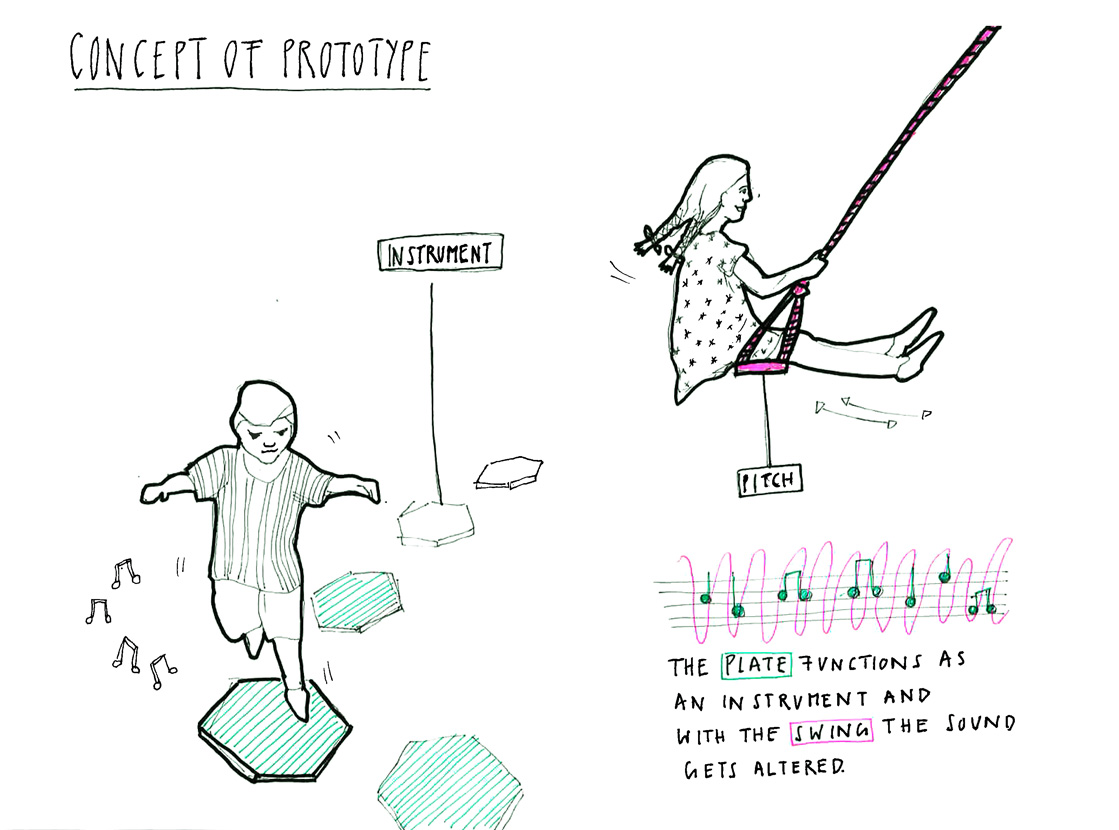 CONCEPT OF PROTOTYPE
INSTRUMENT
PITCH
THE PLATE FUNCTIONS AS
AN INSTRUMENT AND
WITH THE SWING THE SOUND
GETS ALTERED.